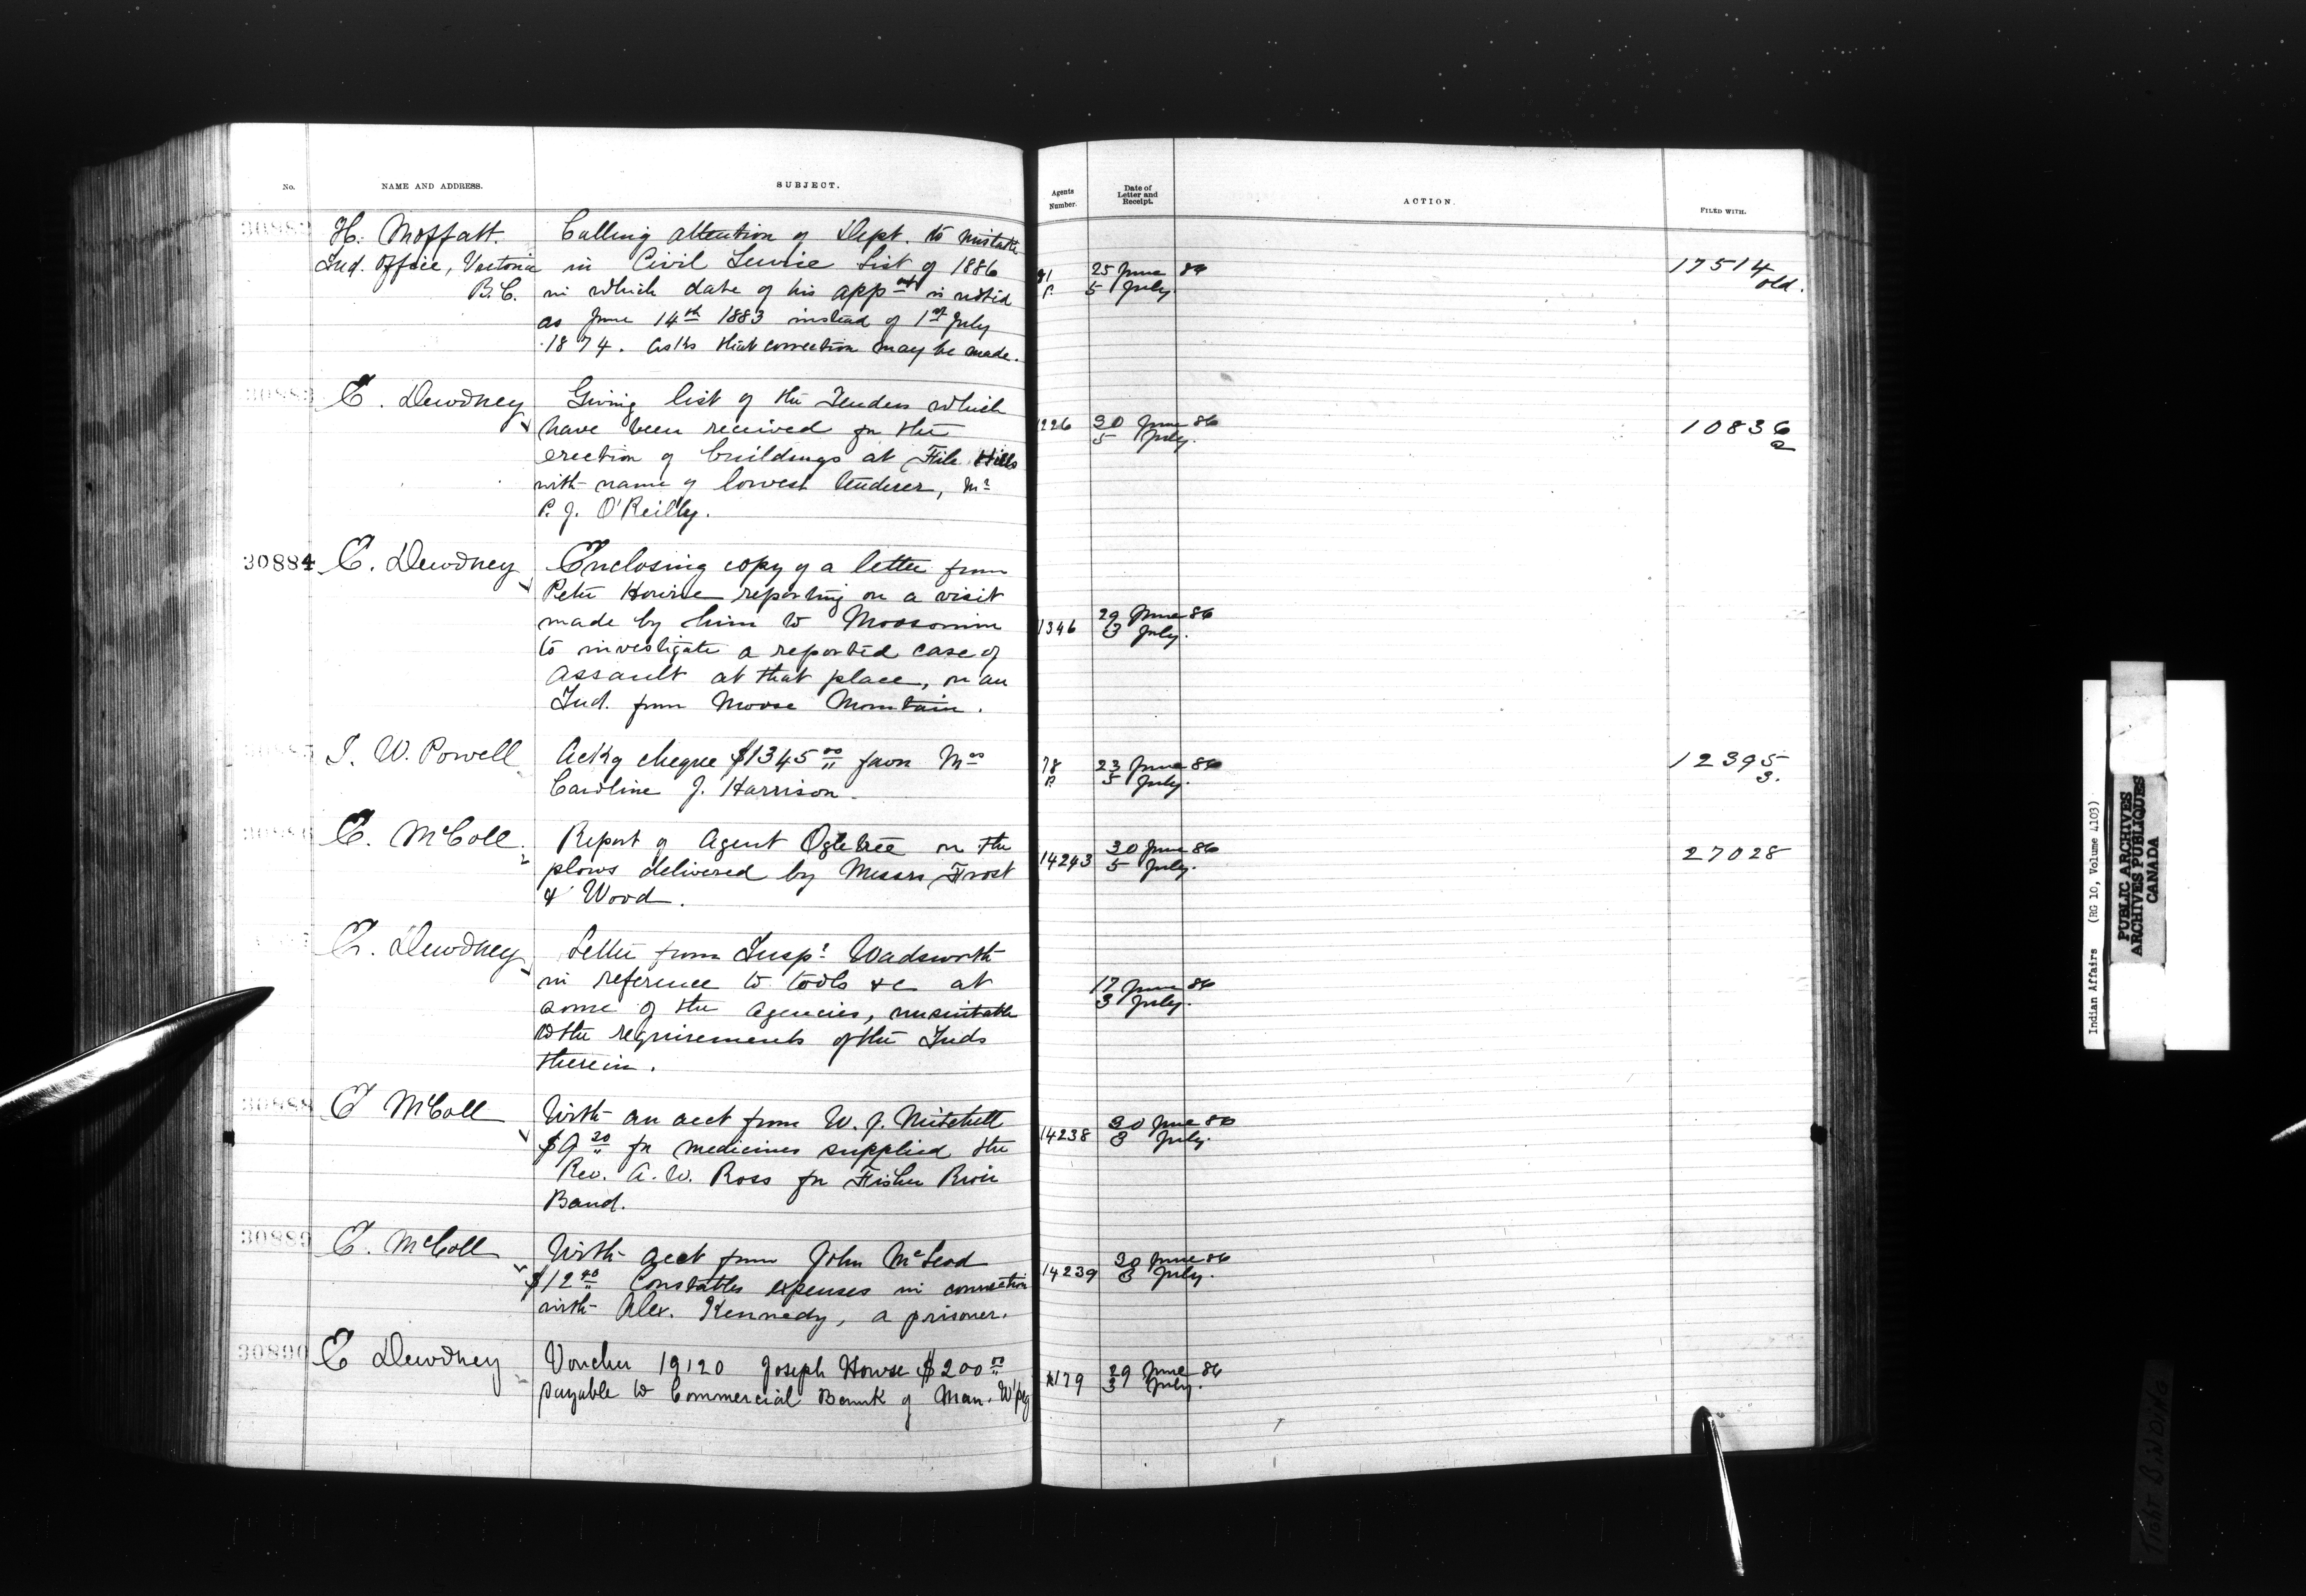 No. NAME AND ADDRESS. SUBJECT. Agents Number. Date of Letter and Receipt. ACTION. FILED WITH.
30882 H. Moffatt. Calling attention of Dept. to mistake
Ind. Office, Victoria in Civil Service List of 1886 81 25 June 86 17514
B.C. in which date of his appnt is noted P. 5 July old.
as June 14th 1883 instead of 1st July
1874. Asks that correction may be made.
30883 E. Dewdney Giving list of the Tenders which
have been received for the 1226 30 June 86 10836
erection of buildings at File Hills 5 July. 2
with name of lowest tenderer, Mr
P. J. O'Reilly.
30884 E. Dewdney Enclosing copy of a letter from
Peter Hourie reporting on a visit
made by him to Moosomin 1346 29 June 86
to investigate a reported case of 3 July.
assault at that place, on an
Ind. from Moose Mountain.
30885 I. W. Powell Ackg cheque $1345 00 favor Mrs 78 23 June 86 12395
Caroline J. Harrison. P. 5 July. 3.
30886 E. McColl Report of Agent Ogletree on the 14243 30 June 86 27028
plows delivered by Messrs Frost 5 July.
& Wood.
E. Dewdney Letter from Inspr Wadsworth
in reference to tools &c at 17 June 86
some of the agencies, unsuitable 3 July.
to the requirements of the Inds
therein.
30888 E McColl With an acct from W. J. Mitchell 14238 30 June 86
$9 20 for medicines supplied the 3 July.
Rev. A. W. Ross for Fisher River
Band.
30889 E. McColl With acct from John McLeod 14239 30 June 86
$12 Constables expenses in connection 3 July.
with Alex. Kennedy, a prisoner.
30890 E Dewdney Voucher 19120 Joseph Howse $200 00 29 June 86
payable to Commercial Bank of Man. W'peg 3 July.
Indian Affairs (RG 10, Volume 4103)
PUBLIC ARCHIVES
ARCHIVES PUBLIQUES
CANADA
Tight BINDING